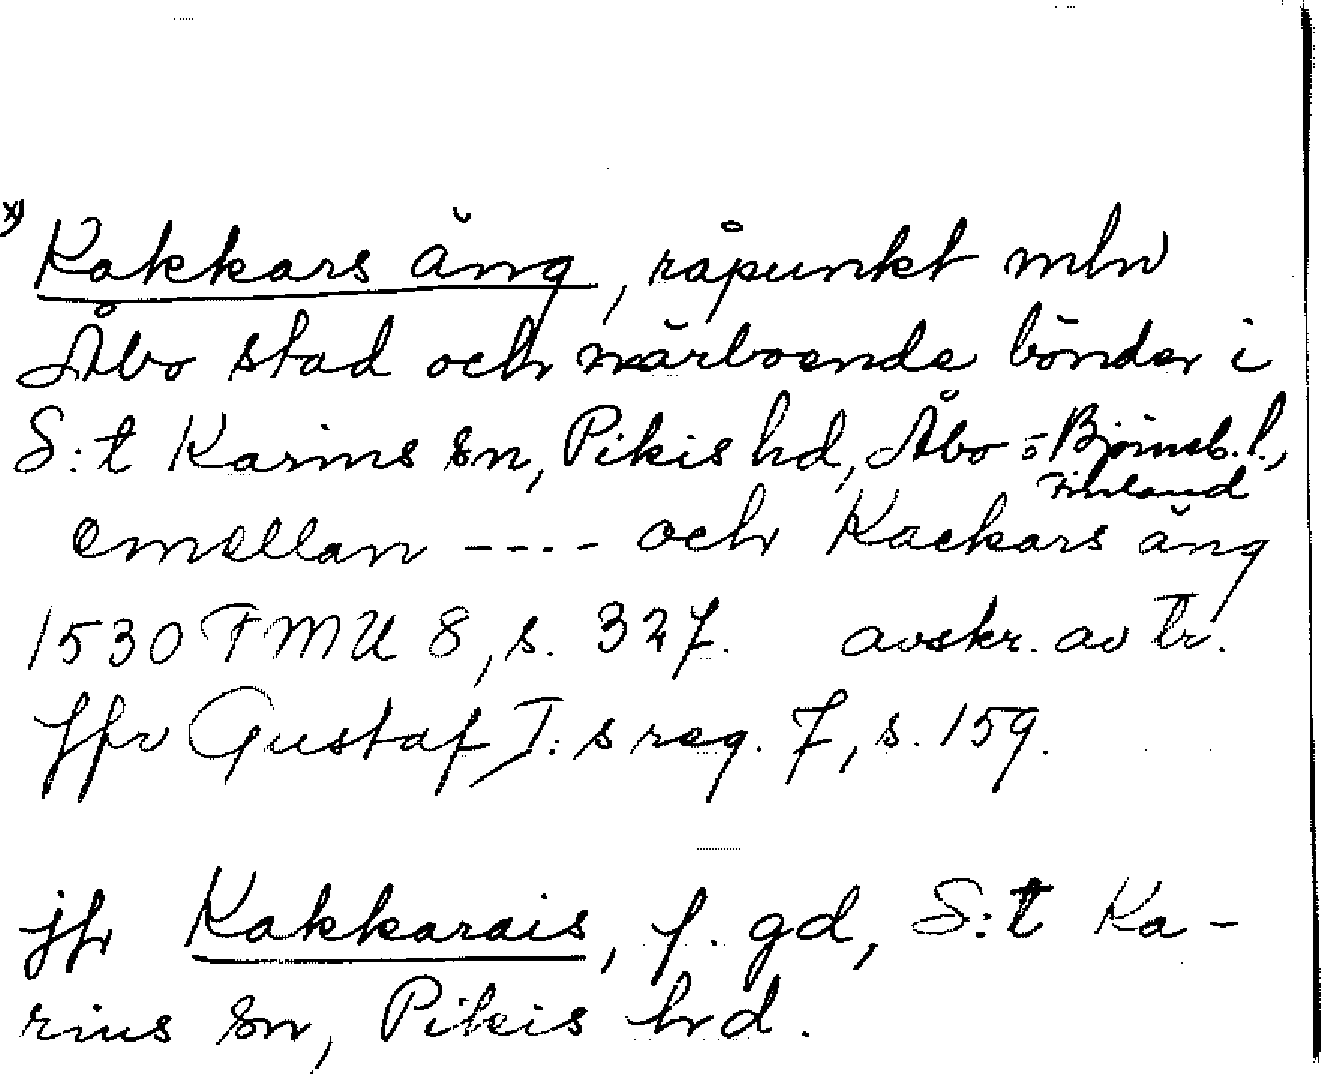 x) Kakkars äng, råpunkt mln
Åbo stad och närboende bönder i
S:t Karins sn, Pikis hd, Åbo o Björneb. l.,
Finland
emellan ---- och Kackars äng
1530 FMU 8, s. 327. avskr. av tr.
Jfr Gustaf I:s reg. 7, s. 159.
jfr Kakkarais, f. gd, S:t Ka-
rins sn, Pikis hrd.